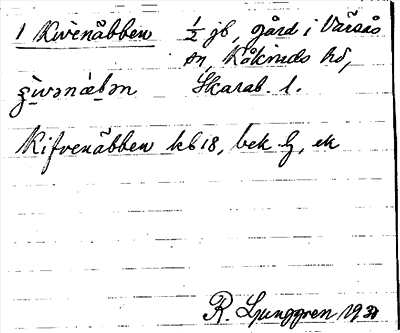 1 Kivenäbben ½ jb, gård i Värsås
sn, Kåkinds hd,
Skarab. l.
Kifvenäbben kb 18, bek. G, ek
R. Ljunggren 1931